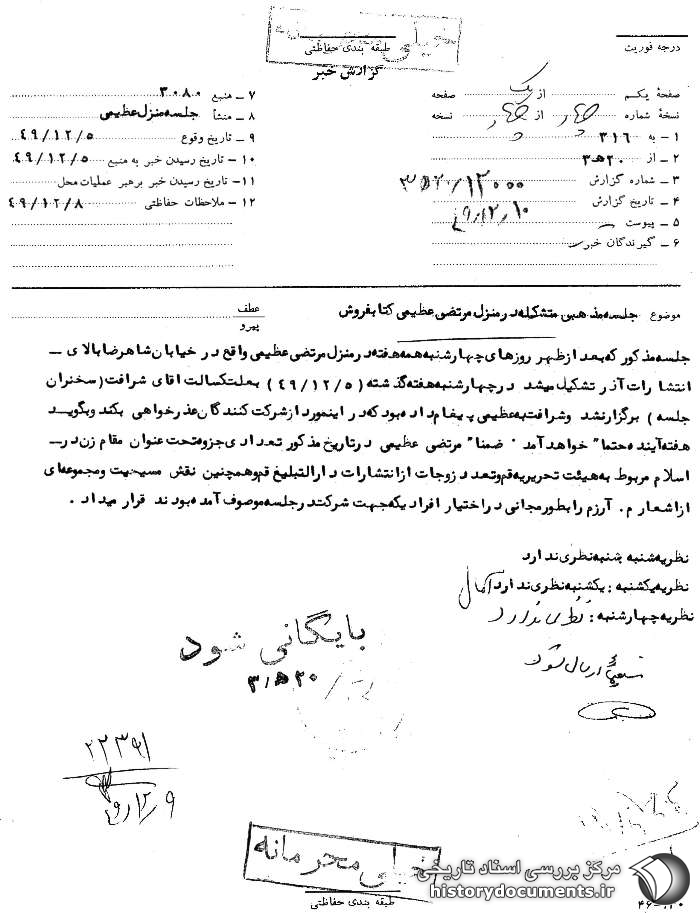 خیلی محرمانه
طبقه بندی حفاظتی
گزارش خبر
درجه فوریت
صفحهٔ یکم از یک صفحه
نسخهٔ شماره چهار از چهار نسخه
۱ – به ۳۱۶
۲ – از ۲۰ ه ۳
۳ – شماره گزارش
۴ – تاریخ گزارش
۵ – پیوست
۶ – گیرندگان خبر
۷ – منبع ۳۰۸۰
۸ – منشأ جلسه منزل عظیمی
۹ – تاریخ وقوع ۴۹/۱۲/۵
۱۰ – تاریخ رسیدن خبر به منبع ۴۹/۱۲/۵
۱۱ – تاریخ رسیدن خبر برهبر عملیات محل
۱۲ – ملاحظات حفاظتی ۴۹/۱۲/۸
موضوع جلسه مذهبی متشکله در منزل مرتضی عظیمی کتابفروش
عطف
پیرو
جلسه مذکور که بعد از ظهر روزهای چهارشنبه همه هفته در منزل مرتضی عظیمی واقع در خیابان شاهرضا بالای –
انتشارات آذر تشکیل میشد در چهارشنبه هفته گذشته (۴۹/۱۲/۵) بعلت کسالت اقای شرافت (سخنران
جلسه) برگزار نشد و شرافت به عظیمی پیغام داده بود که در اینمورد از شرکت کنندگان عذرخواهی بکند و بگوید
هفته آینده حتما" خواهد آمد ۰ ضمنا" مرتضی عظیمی در تاریخ مذکور تعدادی جزوه تحت عنوان مقام زن در –
اسلام مربوط به هیئت تحریریه قم و تعدد زوجات از انتشارات دارالتبلیغ قم و همچنین نقش مسیحیت و مجموعه‌ای
از اشعار م. آرزم را بطور مجانی در اختیار افرادیکه جهت شرکت در جلسه موصوف آمده بودند قرار میداد ۰
نظریه شنبه شنبه نظری ندارد
نظریه یکشنبه : یکشنبه نظری ندارد
نظریه چهارشنبه : نظری ندارد
بایگانی شود
۲۰ ه ۳
ارسال شود
خیلی محرمانه
طبقه بندی حفاظتی
مرکز بررسی اسناد تاریخی
historydocuments.ir